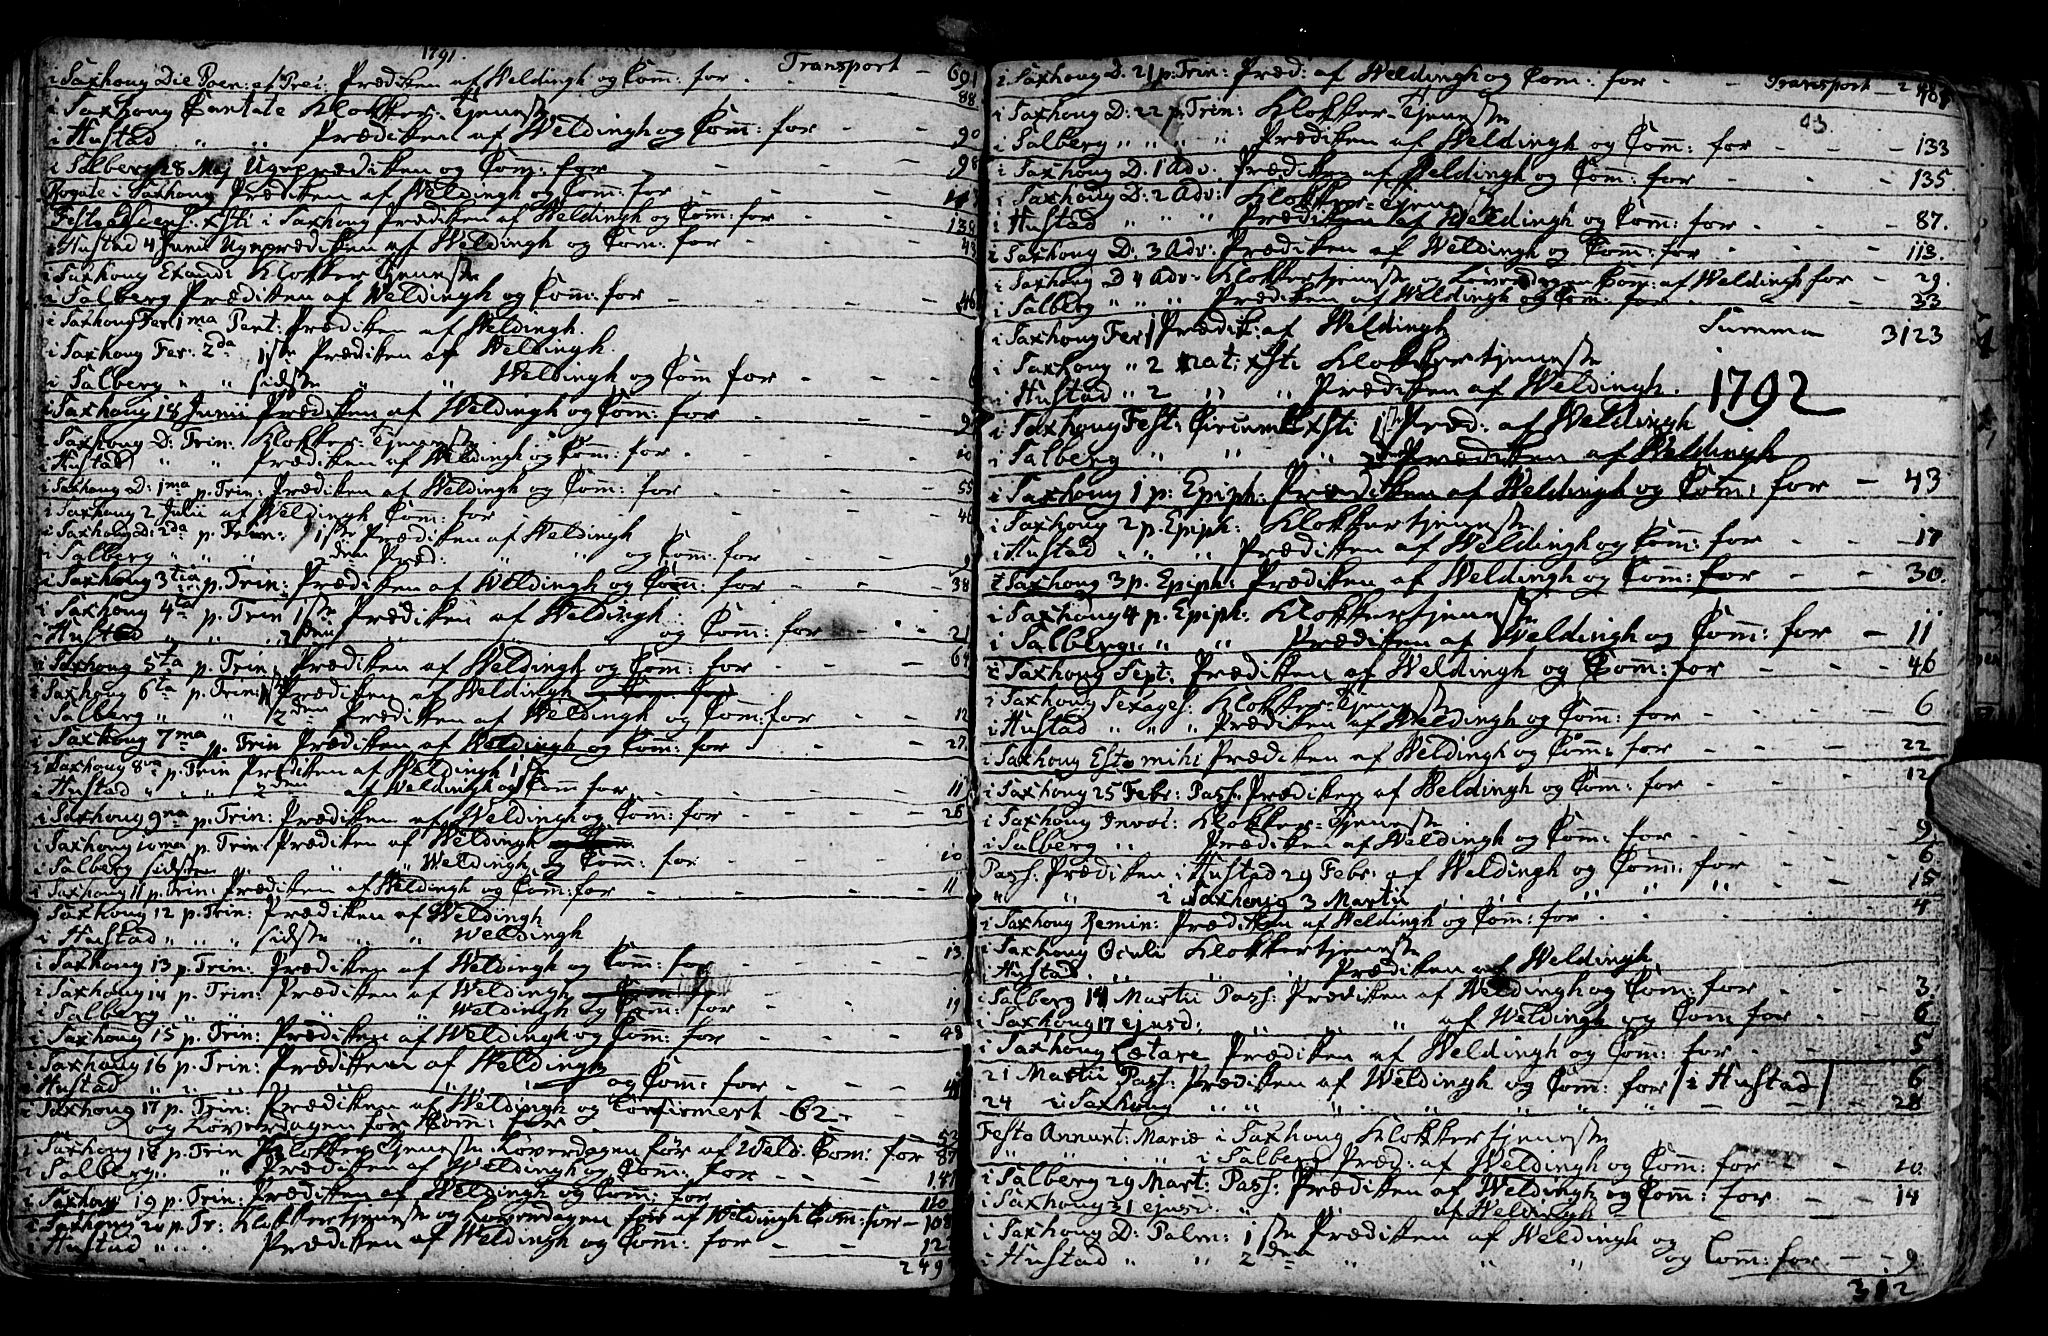 1791. Transport - 691
i Saxhoug Die Poen: et Prei. Prædiken af Weldingh og Com: for - - 88
i Saxhoug Cantate Klokker-Tjeneste
i Hustad " " Prædiken af Weldingh og Com: for - - 90
i Salberg 28 Maj Ugeprædiken og Com: for - - 98
Rogate i Saxhoug Prædiken af Weldingh og Com: for - -
Festo Ascens: xsti i Saxhoug Prædiken af Weldingh og Com: for - - 138
i Hustad 4 Junii Ugeprædiken af Weldingh og Com: for - - 43
i Saxhoug Exaudi Klokker Tjeneste
i Salberg Prædiken af Weldingh og Com: for - - 46
i Saxhoug Fer 1ma Pent: Prædiken af Weldingh.
i Saxhoug Fer: 2da 1ste Prædiken af Weldingh.
i Salberg " " sidste " " Weldingh og Com for - -
i Saxhoug 18 Junii Prædiken af Weldingh og Com: for - -
i Saxhoug D: Trin: Klokker-Tjeneste
i Hustad " " Prædiken af Weldingh og Com: for - - 10
i Saxhoug D: 1ma p. Trin: Prædiken af Weldingh og Com: for - - 55
i Saxhoug 2 Julii af Weldingh Com: for - -
i Saxhoug D: 2da p. Trin: 1ste Prædiken af Weldingh
i Salberg " " " 2den Præd: " " og Com: for - -
i Saxhoug 3tia p. Trin: Prædiken af Weldingh og Com: for - - 38
i Saxhoug 4ta p. Trin 1ste Prædiken af Weldingh
i Hustad " " " 2den " " og Com: for - - 21
i Saxhoug 5ta p. Trin: Prædiken af Weldingh og Com: for - - 64
i Saxhoug 6ta p. Trin: 1ste Prædiken af Weldingh
i Salberg " " 2den Prædiken af Weldingh og Com: for - - 12
i Saxhoug 7ma p. Trin Prædiken af Weldingh og Com: for - - 27
i Saxhoug 8va p. Trin Prædiken af Weldingh 1ste
i Hustad " " " 2den af Weldingh og Com for - - 11
i Saxhoug 9na p. Trin: Prædiken af Weldingh og Com: for - - 26
i Saxhoug 10ma p. Trin: Prædiken af Weldingh
i Salberg sidste " " Weldingh og Com: for - - 10
i Saxhoug 11 p. Trin: Prædiken af Weldingh og Com: for - - 11
i Saxhoug 12 p. Trin: Prædiken af Weldingh
i Hustad " " " sidste " " Weldingh
i Saxhoug 13 p. Trin: Prædiken af Weldingh og Com: for - - 13
i Saxhoug 14 p. Trin: Prædiken af Weldingh
i Salberg " " " " Weldingh og Com: for - - 19
i Saxhoug 15 p. Trin: Prædiken af Weldingh og Com: for - - 48
i Saxhoug 16 p. Trin: Prædiken af Weldingh
i Hustad " " " " " og Com: for - -
i Saxhoug 17 p. Trin: Prædiken af Weldingh og Confirmert - 62 -
og Löverdagen før Com: for - - 53
i Saxhoug 18 p. Trin Klokker Tjeneste Löverdagen før af Weld: Com: for - 87
i Salberg. " Prædiken af Weldingh og Com: for - - 141
i Saxhoug 19 p. Trin: Prædiken af Weldingh og Com: for - - 110
i Saxhoug 20 p. Tr: Klokkertjeneste og Löverdagen før af Weldingh Com: for - 108
i Hustad " " . Prædiken af Weldingh og Com: for - - 12
249
i Saxhoug D. 21 p. Trin: Præd: af Weldingh og Com: for - - Transport -
i Saxhoug D: 22 p. Trin: Klokker-Tjeneste 93
i Salberg " " " " Prædiken af Weldingh og Com: for - - 133
i Saxhoug D. 1 Adv: Prædiken af Weldingh og Com: for - - 135
i Saxhoug D: 2 Adv: Klokker-Tjeneste
i Hustad " " " Prædiken af Weldingh og Com: for - - 87.
i Saxhoug D: 3 Adv: Prædiken af Weldingh og Com: for - - 113.
i Saxhoug D 4 Adv: Klokkertjeneste og Löverdagen Com: af Weldingh for - 29.
i Salberg " " " Prædiken af Weldingh og Com: for - - 33
i Saxhoug Fer 1 Prædik: af Weldingh Summa 3123
i Saxhoug " 2 nat: xsti Klokkertjeneste
i Hustad " 2 " " Prædiken af Weldingh.
1792
i Saxhoug Fest: Circumc xsti 1ste Præd: af Weldingh
i Salberg " " " 2den Prædiken af Weldingh
i Saxhoug 1 p: Epiph: Prædiken af Weldingh og Com: for - 43
i Saxhoug 2 p. Epiph: Klokkertjeneste
i Hustad " " " Prædiken af Weldingh og Com: for - - 17
i Saxhoug 3 p. Epiph: Prædiken af Weldingh og Com: for - - 30.
i Saxhoug 4 p. Epiph: Klokkertjeneste
i Salberg " " Prædiken af Weldingh og Com: for - 11
i Saxhoug Sept: Prædiken af Weldingh og Com: for - - 46
i Saxhoug Sexages: Klokker-Tjeneste
i Hustad " " " Prædiken af Weldingh og Com: for - - 6
i Saxhoug Esto mihi Prædiken af Weldingh og Com: for - - 22
i Saxhoug 25 Febr: Pass: Prædiken af Weldingh og Com: for - - 12
i Saxhoug Invoc: Klokker-Tjeneste
i Salberg " " Prædiken af Weldingh og Com: for - - 9
Pass: Prædiken i Hustad 29 Febr: af Weldingh og Com: for - - 6
" " i Saxhoug 3 Martii " " " " " - 15
i Saxhoug Remin: Prædiken af Weldingh og Com: for - - 4
i Saxhoug Oculi Klokkertjeneste
i Hustad. " " " Prædiken af Weldingh
i Salberg 14 Martii Pass: Prædiken af Weldingh og Com: for - - 3.
i Saxhoug 17 ejusd: " " " af Weldingh og Com for - - 6
i Saxhoug Lætare Prædiken af Weldingh og Com: for - - 5
21 Martii Pass: Prædiken af Weldingh og Com: for | i Hustad | - 6
24 i Saxhoug " " " " " " - - 28
Festo Annunt: Mariæ i Saxhoug Klokkertjeneste
" " " " i Salberg Præd: af Weldingh og Com: for - - 10.
i Salberg 29 Mart: Pass: Prædiken af Weldingh og Com: for - - 14
i Saxhoug 31 ejusd. " af Weldingh
i Saxhoug D: Palm: 1ste Prædiken af Weldingh og
i Hustad " " 2den " " og Com: for - - 9.
312